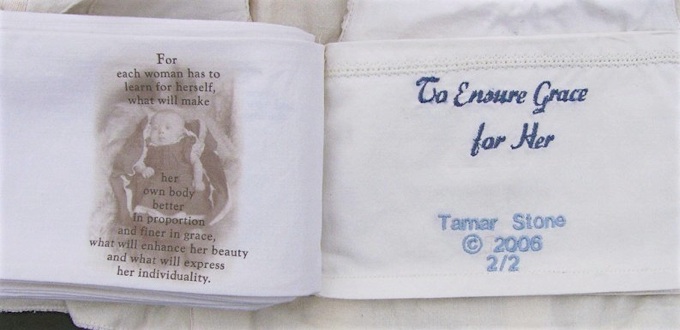 For
each woman has to
learn for herself,
what will make
her
own body
better
in proportion
and finer in grace,
what will enhance her beauty
and what will express
her individuality.
To Ensure Grace
for Her
Tamar Stone
© 2006
2/2